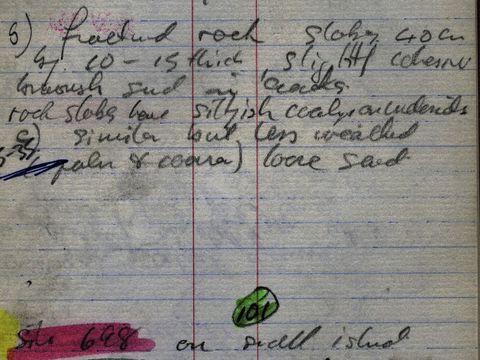 B) fractured rock slabs 40cm
by 10-15 thick, slightly coherent
brownish sand in cracks.
rock slabs have siltyish
c) similar but less weathered
(paler & coarser) loose sand
101
Site 698 on small island